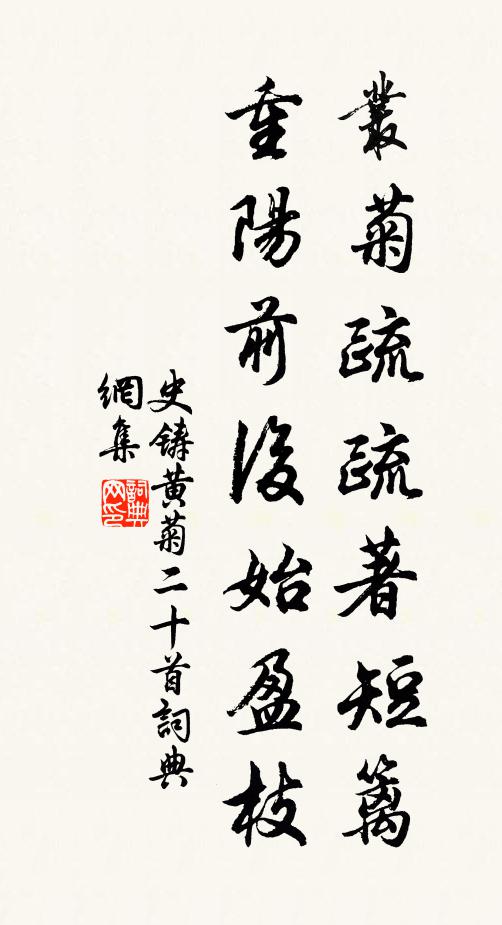 叢菊疏疏著短籬
重陽前後始盈枝
史鑄黃菊二十首詞典
網集
詞典
网印